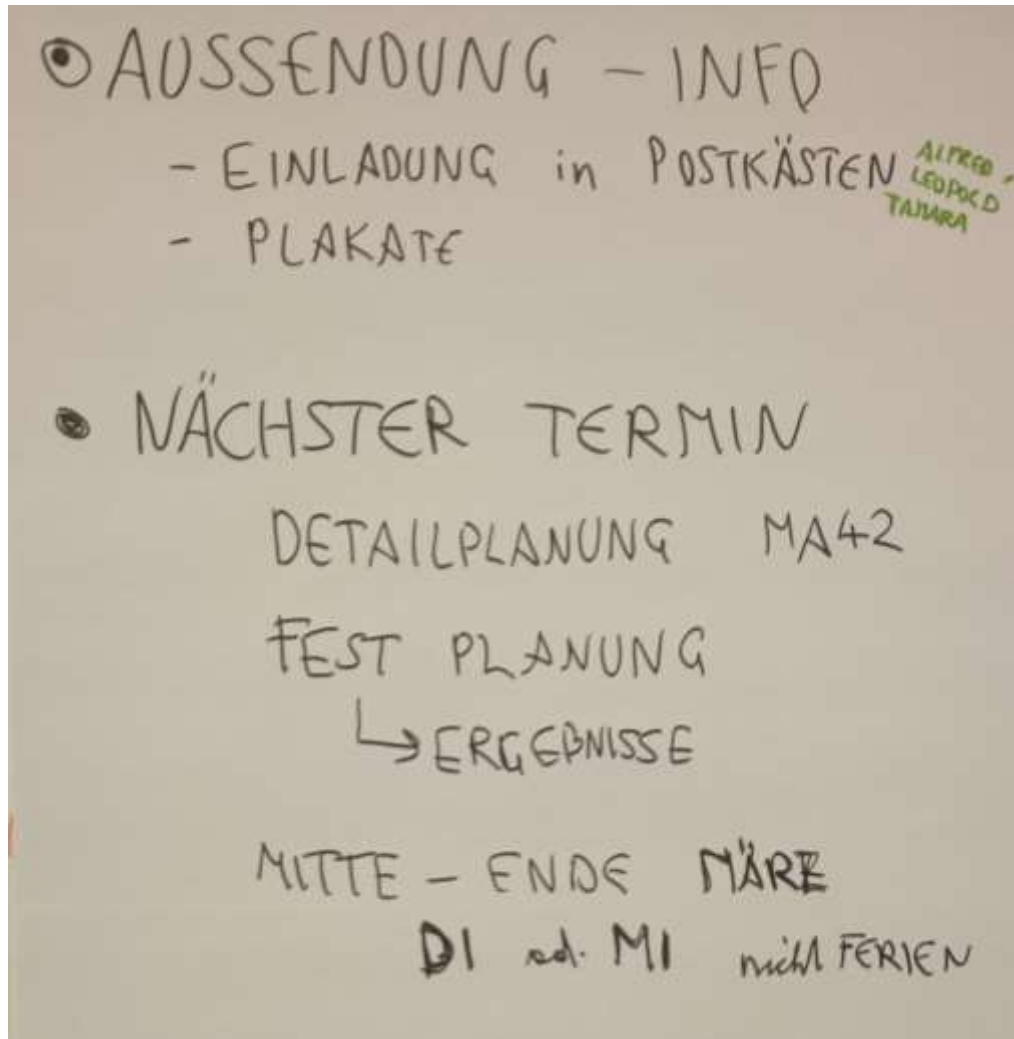 AUSSENDUNG - INFO
- EINLADUNG in POSTKÄSTEN
ALFRED,
LEOPOLD
TAMARA
- PLAKATE
NÄCHSTER TERMIN
DETAILPLANUNG MA42
FEST PLANUNG
↳ ERGEBNISSE
MITTE - ENDE MÄRZ
DI od. MI nicht FERIEN